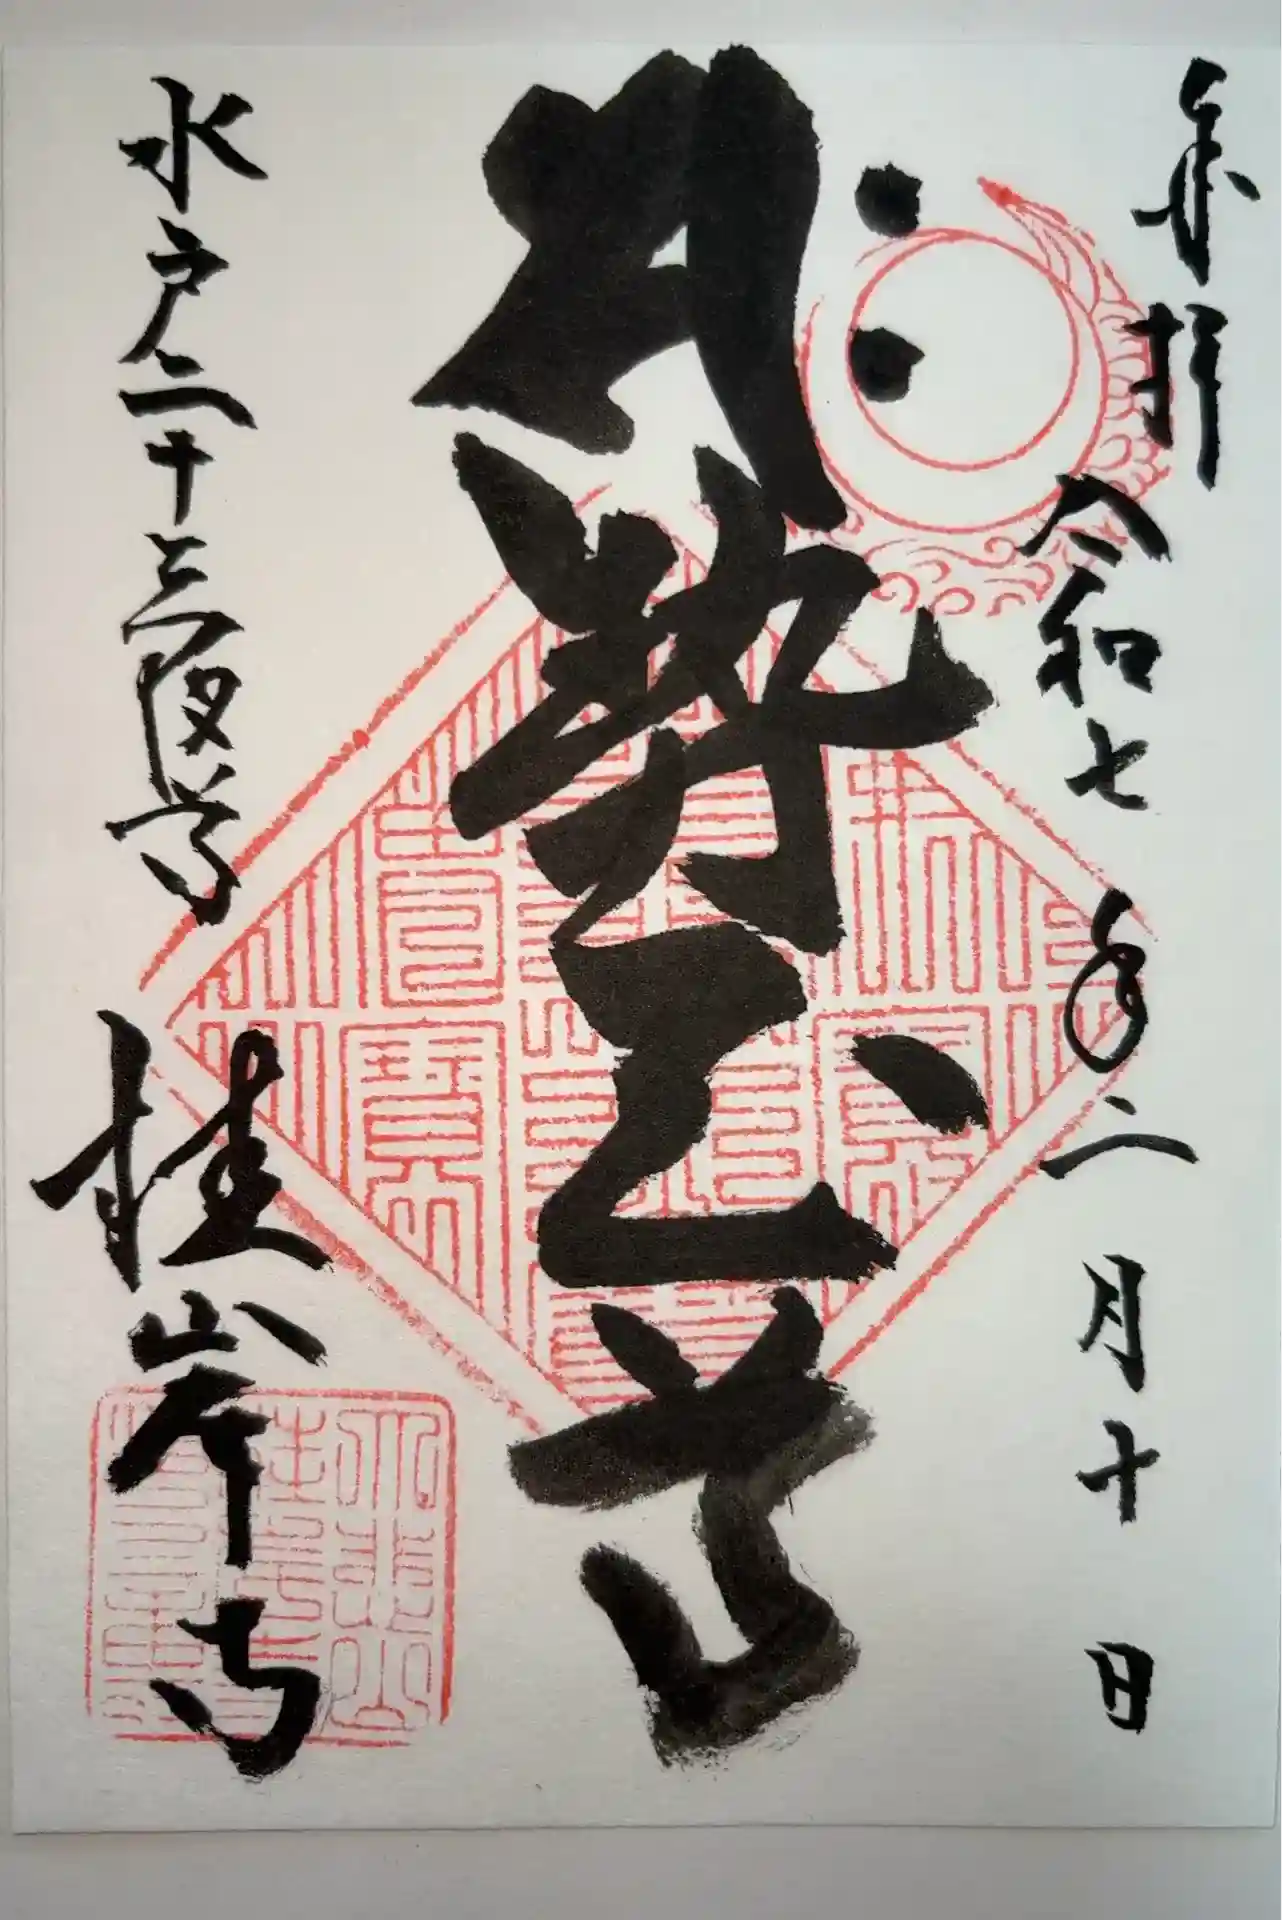 奉拝
令和七年二月十日
勢至尊
水戸二十三夜尊
桂岸寺